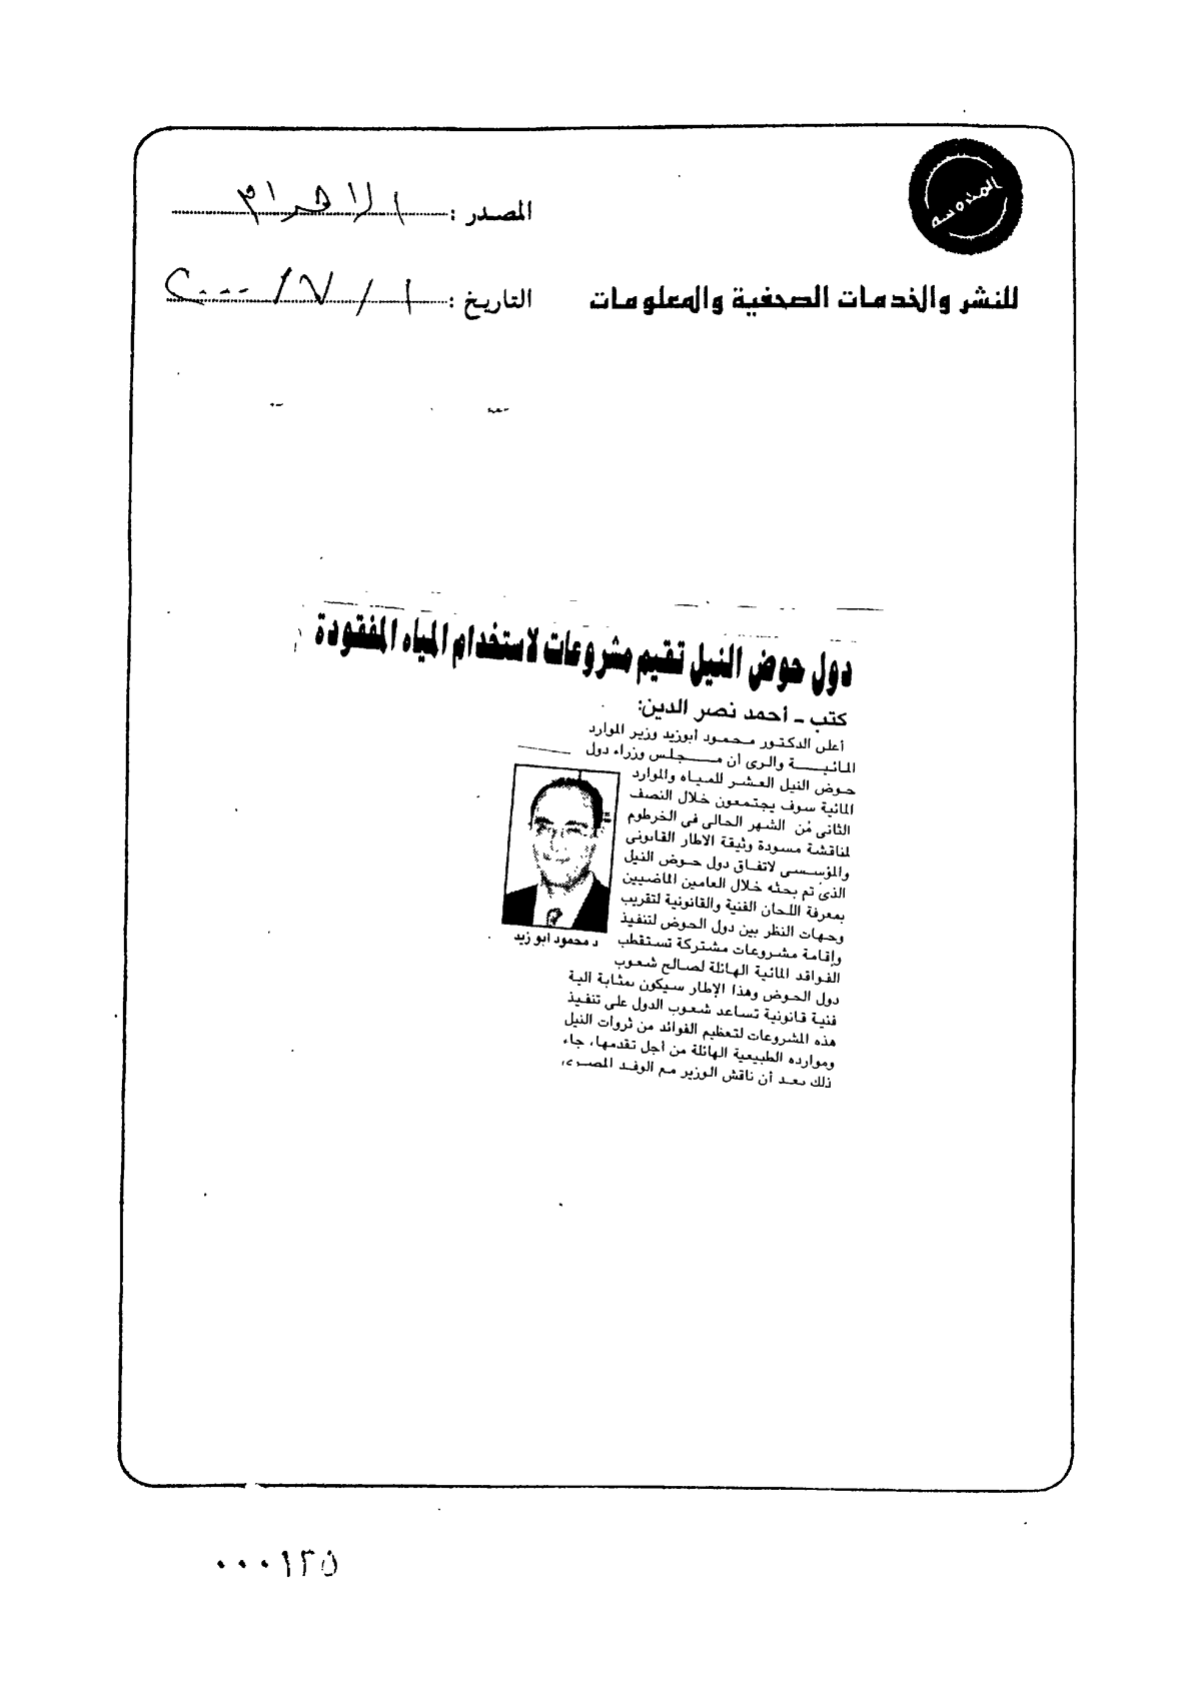 المدوسه
المصدر : الاهرام
للنشر والخدمات الصحفية والمعلومات
التاريخ : ١ / ٧ / ٢٠٠٠
دول حوض النيل تقيم مشروعات لاستخدام المياه المفقودة
كتب ـ أحمد نصر الدين:
أعلن الدكتور محمود أبوزيد وزير الموارد
المائية والرى أن مجلس وزراء دول
حوض النيل العشر للمياه والموارد
المائية سوف يجتمعون خلال النصف
الثانى من الشهر الحالى فى الخرطوم
لمناقشة مسودة وثيقة الاطار القانونى
والمؤسسى لاتفاق دول حوض النيل
الذى تم بحثه خلال العامين الماضيين
بمعرفة اللجان الفنية والقانونية لتقريب
وجهات النظر بين دول الحوض لتنفيذ
وإقامة مشروعات مشتركة تستقطب
الفواقد المائية الهائلة لصالح شعوب
دول الحوض وهذا الإطار سيكون بمثابة الية
فنية قانونية تساعد شعوب الدول على تنفيذ
هذه المشروعات لتعظيم الفوائد من ثروات النيل
وموارده الطبيعية الهائلة من أجل تقدمها، جاء
ذلك بعد أن ناقش الوزير مع الوفد المصرى
د محمود ابو زيد
٠٠٠١٣٥